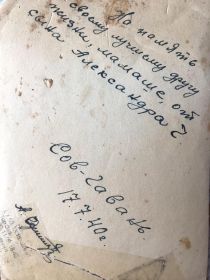 На память
своему лучшему другу
жизни, мамаше, от
сына Александра
Сов-Гавань
17.7.40г.